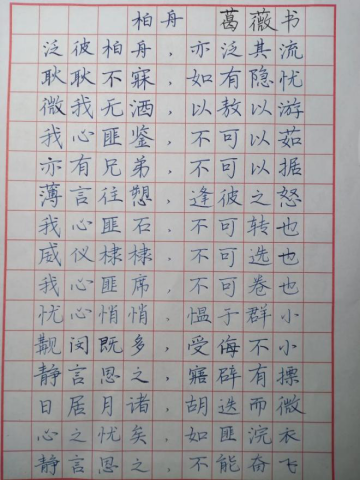 柏舟 葛薇书
泛彼柏舟，亦泛其流
耿耿不寐，如有隐忧
微我无酒，以敖以游
我心匪鉴，不可以茹
亦有兄弟，不可以据
薄言往愬，逢彼之怒
我心匪石，不可转也
威仪棣棣，不可选也
我心匪席，不可卷也
忧心悄悄，愠于群小
觏闵既多，受侮不小
静言思之，寤辟有摽
日居月诸，胡迭而微
心之忧矣，如匪浣衣
静言思之，不能奋飞